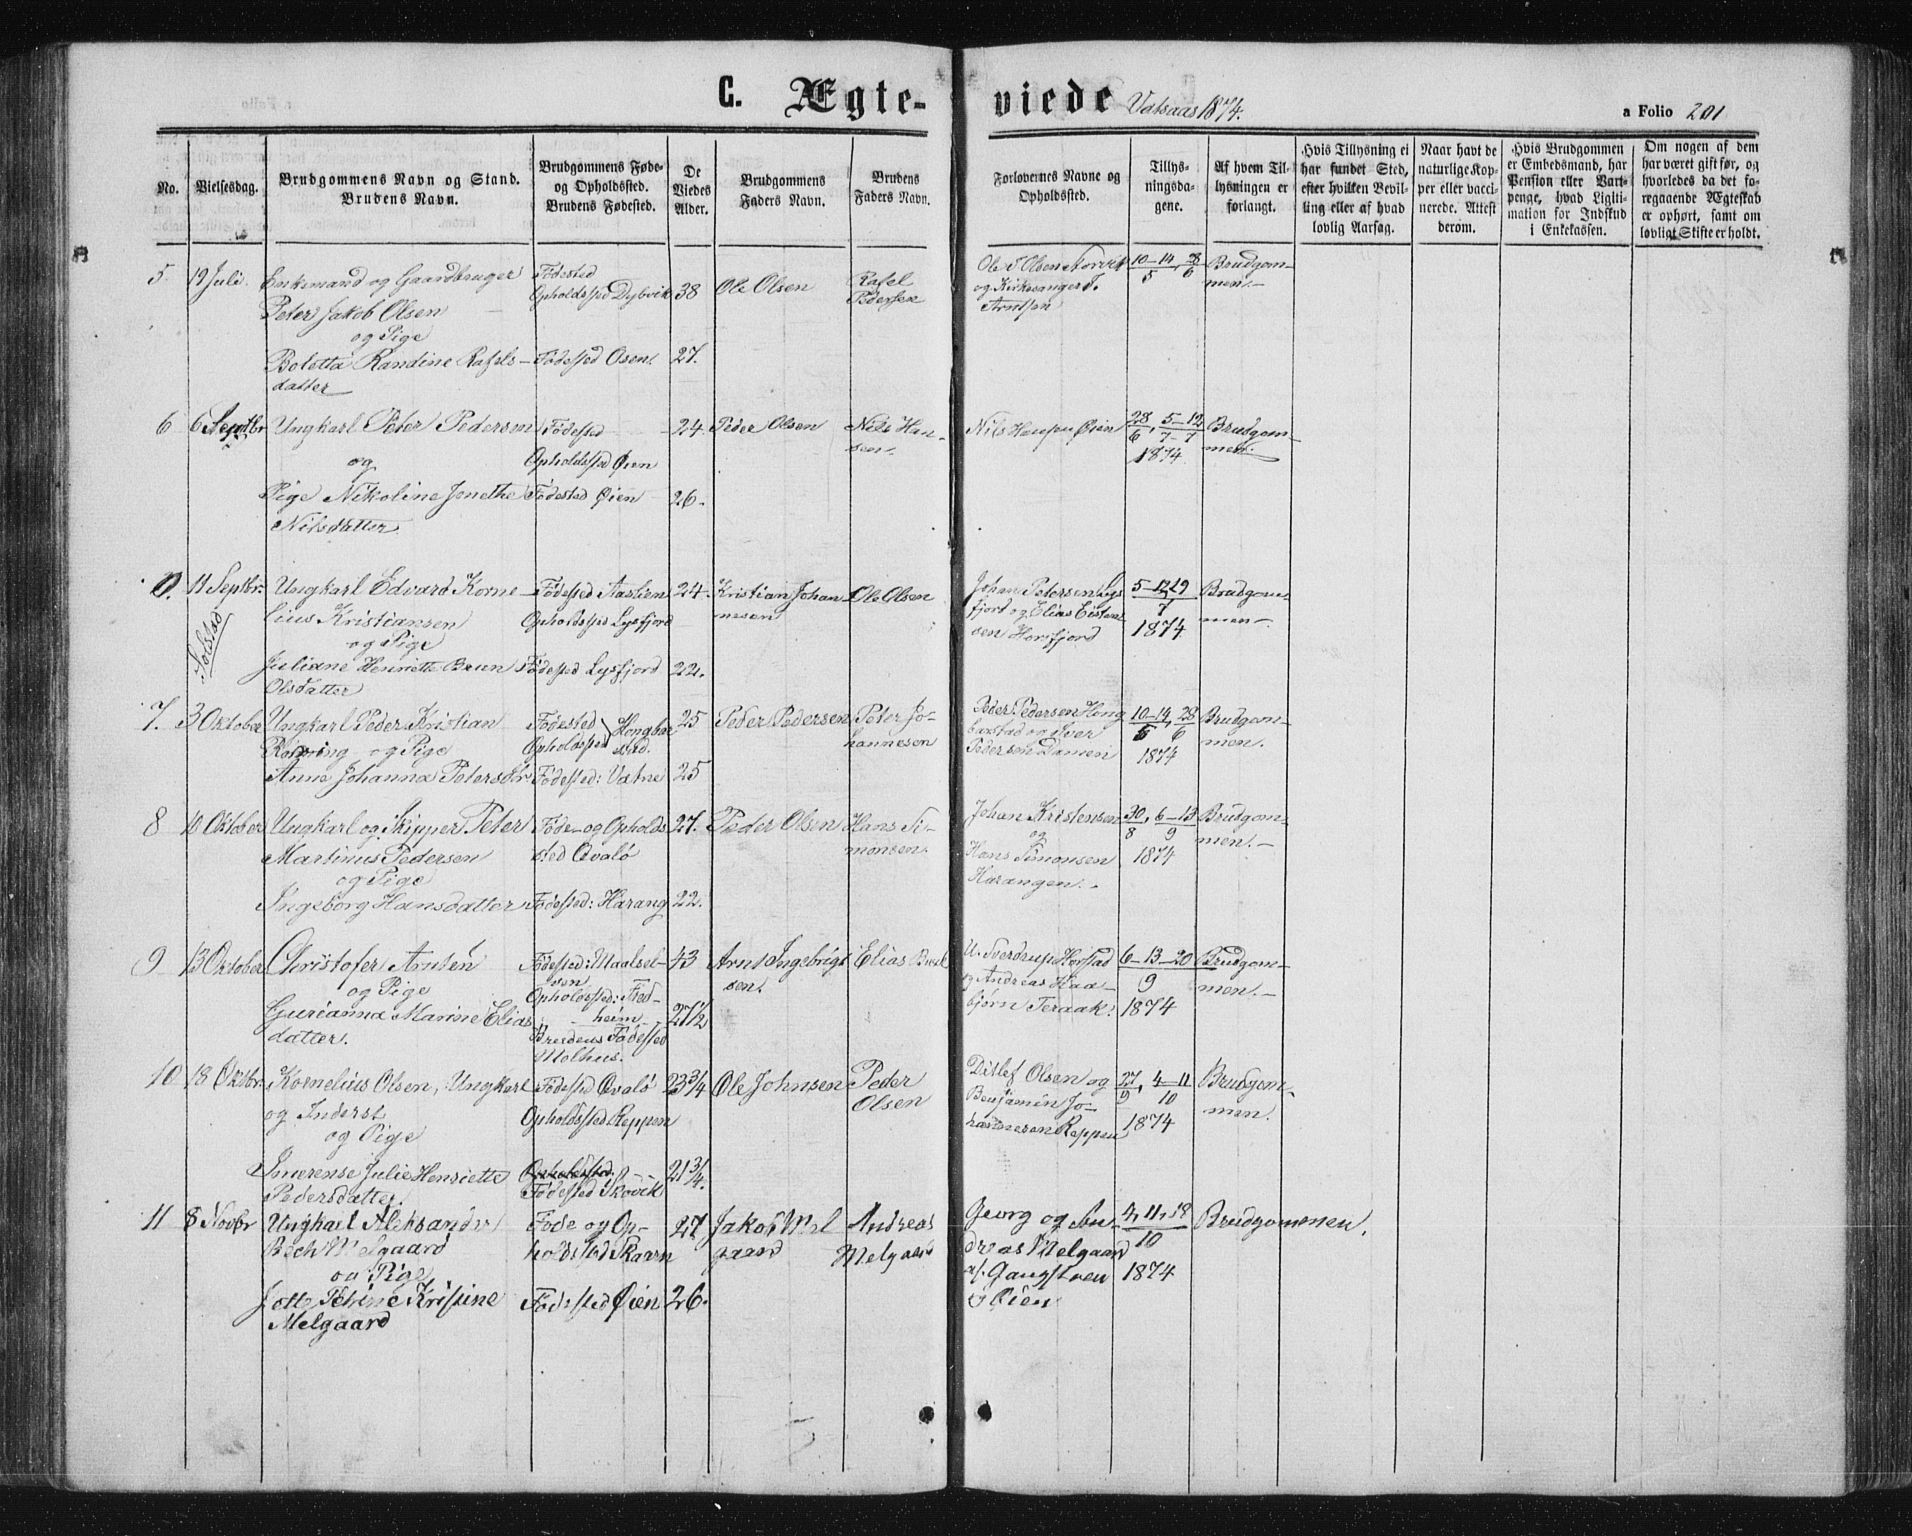 C. Ægte-viede 1874.
a Folio 201
No.
Vielsesdag.
Brudgommens Navn og Stand.
Brudens Navn.
Brudgommens Føde-
og Opholdssted.
Brudens Fødested.
De
Viedes
Alder.
Brudgommens
Faders Navn.
Brudens
Faders Navn.
Forlovernes Navne og
Opholdssted.
Tillys-
ningsda-
gene.
Af hvem Til-
lysningen er
forlangt.
Hvis Tillysning ei
har fundet Sted,
efter hvilken Bevil-
ling eller af hvad
lovlig Aarsag.
Naar havt de
naturlige Kop-
per eller vacci-
nerede. Attest
derom.
Hvis Brudgommen
er Embedsmand, har
Pension eller Vart-
penge, hvad Ligiti-
mation for Indskud
i Enkekassen.
Om nogen af dem
har været gift før, og
hvorledes da det fo-
regaaende Ægteskab
er ophørt, samt om
lovligt Skifte er holdt.
5 19 Juli Enkemand og Gaardbruger
Peter Jakob Olsen
og Pige
Boletta Randine Rafels-
datter
Fødested
Opholdssted Dybvik 38
Fødested Osen. 27.
Ole Olsen
Rafel
Pedersen
Ole T Olsen Storvik
og Kirkesanger J.
Arntsen
10-14, 28
5 6
Brudgom-
men.-
6 6 Septbr Ungkarl Peter Pedersen
og
Pige Nikoline Jonethe
Nilsdatter
Fødested
Opholdssted Øien
24.
Fødested Øien 26.
Peder Olsen
Nils Han-
sen.
Nils Hansen Øien
28, 5-12
6 7-7
1874
Brudgom-
men.
0. 11 Septbr.
Solstad
Ungkarl Edvard Korne-
lius Kristiansen
og Pige
Juliane Henriette Brun
Olsdatter
Fødested Aaslien 24.
Opholdssted Lysfjord
Fødested Lysfjord 22.
Kristian Johan
nesen
Ole Olsen
Johan Petersen Lys
fjord og Elias Eisten
sen Horsfjord
5-12,19
7
1874
Brudgom-
men.
7. 3 Oktober Ungkarl Peder Kristian
og Pige
Anne Johanna Petersdtr
Fødested
Opholdssted
Hongbar
stad.
25
Fødested: Vatne 25
Peder Pedersen
Peter Jo-
hannesen
Peder Pedersen Hong
barstad og Iver
Pedersen
10-14, 28
5 6
1874
Brudgom-
men.
8 10 Oktober Ungkarl og Skipper Peter
Martinus Pedersen
og Pige
Ingeborg Hansdatter
Føde- og Opholds
sted Qvalø
27.
Fødested: Harang 22.
Peder Olsen
Hans Si-
monsen.
Johan Kristensen
og
Hans Simonsen
Harangen.
30, 6-13
8 9
1874
Brudgom-
men.-
9 13 Oktober Christofer Arntsen
og Pige
Gurianna Marine Elias
datter.
Fødested: Maalsel-
ven
Opholdssted: Fred-
heim
Brudens Fødested
Molhus.
43
27 1/2
Arnt Ingebrigt
sen.
Elias
U. Sverdrup Horstad
og Andreas Haa-
bjørn Teraak.
6-13-20
9
1874
Brudgom-
men.-
10 18 Oktbr. Kornelius Olsen, Ungkarl
og Inderst
og Pige
Imerense Julie Henriette
Pedersdatter.
Fødested Qvalø 23 3/4
Opholdssted Reppen
Opholdssted
Fødested Skovik
21 3/4.
Ole Johnsen
Peder
Olsen
Ditlef Olsen og
Benjamin Jo-
hannesen Reppen
27, 4-11
9 10
1874
Brudgom-
men.
11 8 Novbr Ungkarl Aleksander
Bech Melgaard
og Pige
Petrine Kristine
Melgaard
Føde og Op-
holdssted Skavn
27
Fødested Øien 26.
Jakob Mel
gaard
Andreas
Melgaard
Georg og An-
dreas Melgaard
af Gangstøen
Øien
4, 11, 18
10
1874
Brudgommen.